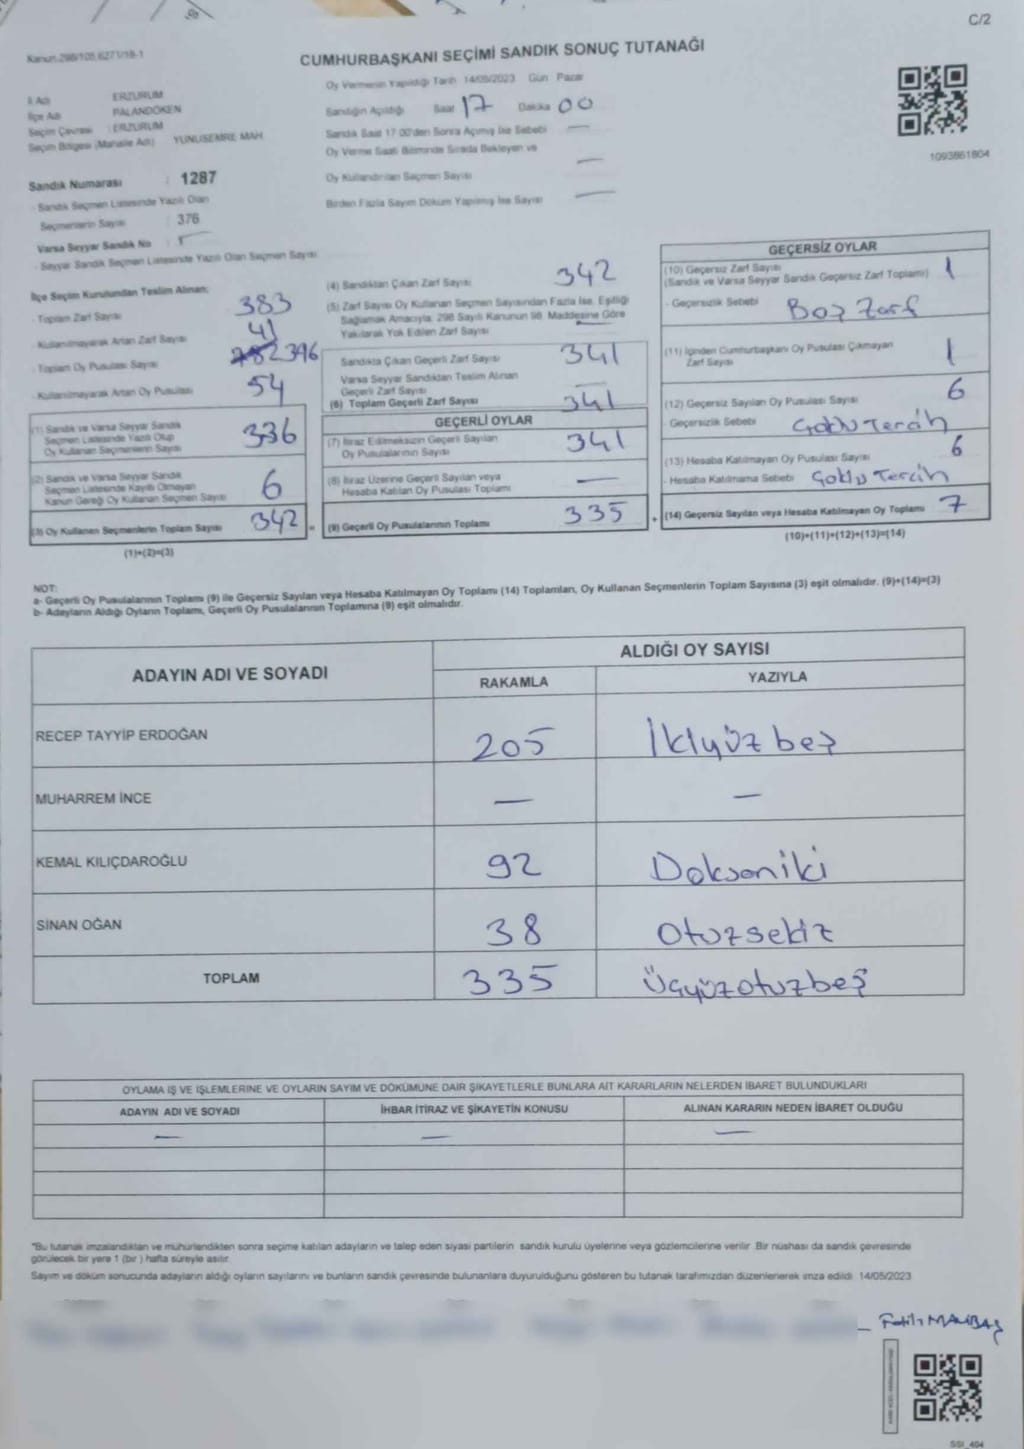 C/2
Kanun.298/105.6271/18-1
CUMHURBAŞKANI SEÇİMİ SANDIK SONUÇ TUTANAĞI
Oy Vermenin Yapıldığı Tarih 14/05/2023 Gün Pazar
İl Adı ERZURUM
İlçe Adı PALANDÖKEN
Seçim Çevresi : ERZURUM
Seçim Bölgesi (Mahalle Adı) YUNUSEMRE MAH.
Sandığın Açıldığı Saat 17 Dakika 00
Sandık Saat 17.00'den Sonra Açılmış İse Sebebi —
Oy Verme Saati Bitiminde Sırada Bekleyen ve
Oy Kullandırılan Seçmen Sayısı —
Birden Fazla Sayım Döküm Yapılmış İse Sayısı —
1093861804
Sandık Numarası : 1287
- Sandık Seçmen Listesinde Yazılı Olan
Seçmenlerin Sayısı : 376
Varsa Seyyar Sandık No :
- Seyyar Sandık Seçmen Listesinde Yazılı Olan Seçmen Sayısı
İlçe Seçim Kurulundan Teslim Alınan:
- Toplam Zarf Sayısı 383
- Kullanılmayarak Artan Zarf Sayısı 41
- Toplam Oy Pusulası Sayısı 396
- Kullanılmayarak Artan Oy Pusulası 54
(1) Sandık ve Varsa Seyyar Sandık
Seçmen Listesinde Yazılı Olup
Oy Kullanan Seçmenlerin Sayısı 336
(2) Sandık ve Varsa Seyyar Sandık
Seçmen Listesinde Kayıtlı Olmayan
Kanun Gereği Oy Kullanan Seçmen Sayısı 6
(3) Oy Kullanan Seçmenlerin Toplam Sayısı 342 =
(1)+(2)=(3)
(4) Sandıktan Çıkan Zarf Sayısı 342
(5) Zarf Sayısı Oy Kullanan Seçmen Sayısından Fazla İse, Eşitliği
Sağlamak Amacıyla; 298 Sayılı Kanunun 98. Maddesine Göre
Yakılarak Yok Edilen Zarf Sayısı
Sandıkta Çıkan Geçerli Zarf Sayısı 341
Varsa Seyyar Sandıktan Teslim Alınan
Geçerli Zarf Sayısı —
(6) Toplam Geçerli Zarf Sayısı 341
GEÇERLİ OYLAR
(7) İtiraz Edilmeksizin Geçerli Sayılan
Oy Pusulalarının Sayısı 341
(8) İtiraz Üzerine Geçerli Sayılan veya
Hesaba Katılan Oy Pusulası Toplamı —
(9) Geçerli Oy Pusulalarının Toplamı 335 +
GEÇERSİZ OYLAR
(10) Geçersiz Zarf Sayısı
(Sandık ve Varsa Seyyar Sandık Geçersiz Zarf Toplamı) 1
- Geçersizlik Sebebi Boş Zarf
(11) İçinden Cumhurbaşkanı Oy Pusulası Çıkmayan
Zarf Sayısı 1
(12) Geçersiz Sayılan Oy Pusulası Sayısı 6
- Geçersizlik Sebebi Çoklu Tercih
(13) Hesaba Katılmayan Oy Pusulası Sayısı 6
- Hesaba Katılmama Sebebi Çoklu Tercih
(14) Geçersiz Sayılan veya Hesaba Katılmayan Oy Toplamı 7
(10)+(11)+(12)+(13)=(14)
NOT:
a- Geçerli Oy Pusulalarının Toplamı (9) ile Geçersiz Sayılan veya Hesaba Katılmayan Oy Toplamı (14) Toplamları, Oy Kullanan Seçmenlerin Toplam Sayısına (3) eşit olmalıdır. (9)+(14)=(3)
b- Adayların Aldığı Oyların Toplamı, Geçerli Oy Pusulalarının Toplamına (9) eşit olmalıdır.
ADAYIN ADI VE SOYADI ALDIĞI OY SAYISI
RAKAMLA YAZIYLA
RECEP TAYYİP ERDOĞAN 205 İkiyüzbeş
MUHARREM İNCE — —
KEMAL KILIÇDAROĞLU 92 Doksaniki
SİNAN OĞAN 38 Otuzsekiz
TOPLAM 335 Üçyüzotuzbeş
OYLAMA İŞ VE İŞLEMLERİNE VE OYLARIN SAYIM VE DÖKÜMÜNE DAİR ŞİKAYETLERLE BUNLARA AİT KARARLARIN NELERDEN İBARET BULUNDUKLARI
ADAYIN ADI VE SOYADI İHBAR İTİRAZ VE ŞİKAYETİN KONUSU ALINAN KARARIN NEDEN İBARET OLDUĞU
— — —
*Bu tutanak imzalandıktan ve mühürlendikten sonra seçime katılan adayların ve talep eden siyasi partilerin sandık kurulu üyelerine veya gözlemcilerine verilir. Bir nüshası da sandık çevresinde
görülecek bir yere 1 (bir ) hafta süreyle asılır.
Sayım ve döküm sonucunda adayların aldığı oyların sayılarını ve bunların sandık çevresinde bulunanlara duyurulduğunu gösteren bu tutanak tarafımızdan düzenlenerek imza edildi. 14/05/2023
Fatih
SSI_404